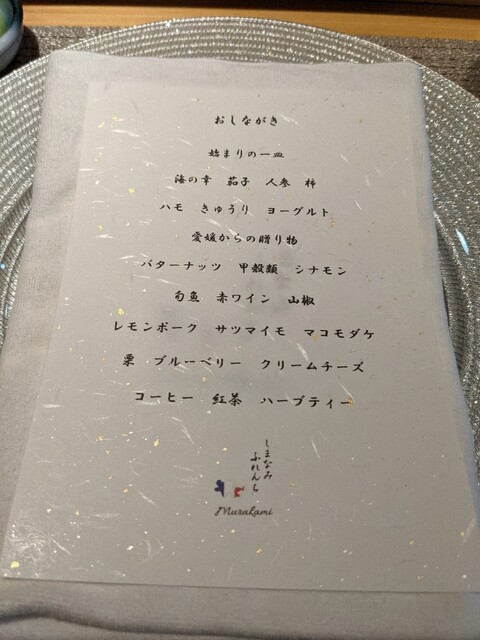 おしながき
始まりの一皿
海の幸 茄子 人参 柿
ハモ きゅうり ヨーグルト
愛媛からの贈り物
バターナッツ 甲殻類 シナモン
旬魚 赤ワイン 山椒
レモンポーク サツマイモ マコモダケ
栗 ブルーベリー クリームチーズ
コーヒー 紅茶 ハーブティー
しまなみ
ふれんち
Murakami